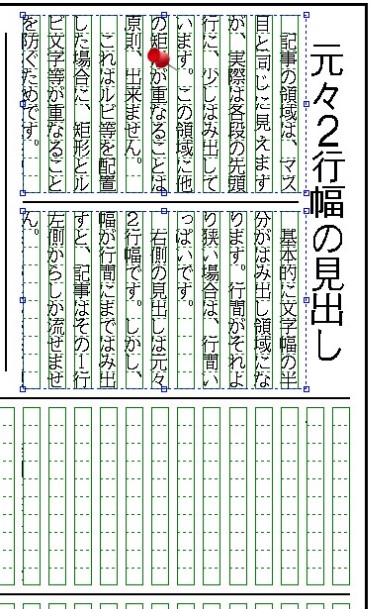 元々2行幅の見出し
記事の領域は、マス
目と同じに見えます
が、実際は各段の先頭
行に、少しはみ出して
います。この領域に他
の矩が重なることは
原則、出来ません。
これはルビ等を配置
した場合に、矩形とル
ビ文字等が重なること
を防ぐためです。
基本的に文字幅の半
分がはみ出し領域にな
ります。行間がそれよ
り狭い場合は、行間い
っぱいです。
右側の見出しは元々
2行幅です。しかし、
幅が行間にまではみ出
すと、記事はその1行
左側からしか流せませ
ん。